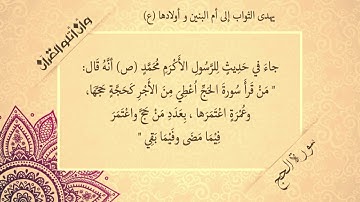 يهدى الثواب إلى أم البنين و أولادها (ع)
وأن أتلو القرآن
جاءَ في حَدِيثِ لِلرَّسُولِ الأَكْرَمِ مُحَمَّدٍ (ص) أنَّهُ قَال:
" مَنْ قَرَأَ سُورَةَ الحَجِّ أُعْطِيَ مِنَ الأَجْرِ كَحَجَّةٍ حَجَّهَا،
وَعُمْرَةٍ اعْتَمَرَها ، بِعَدَدِ مَنْ حَجَّ وَاعْتَمَرَ
فِيْمَا مَضَى وَفَيْمَا بَقِي "
سورة الحج